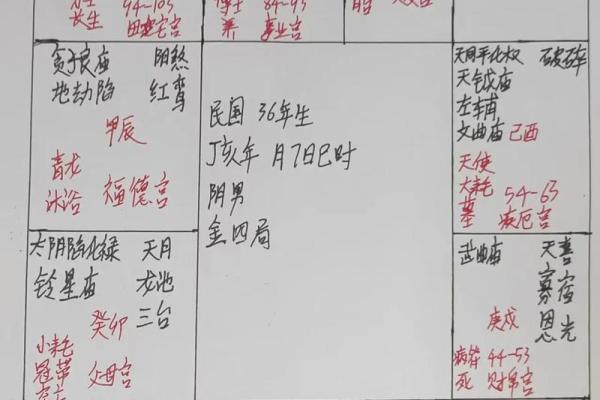 长生 94-103
田宅宫
养 84-93
事业宫
贪狼庙 阴煞
地劫陷 红鸾
甲辰
青龙
沐浴 福德宫
民国 36年生
丁亥年 月7日巳时
阴男
金四局
天同平化权 破碎
天钺庙
左辅
文曲庙 己酉
天使
大耗 54-63
墓 疾厄宫
太阴陷化禄 天月
铃星庙 龙池
癸卯 三台
小耗
冠带 父母宫
武曲庙 天喜
寡宿
庚戌 恩光
病符 44-53
死 财帛宫